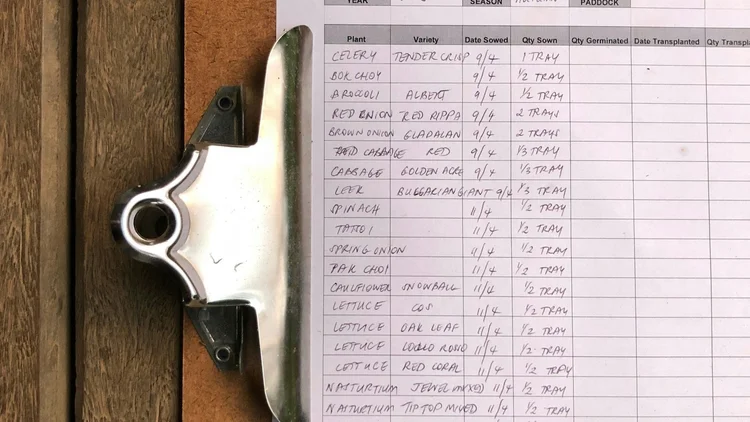 YEAR SEASON AUTUMN PADDOCK
Plant Variety Date Sowed Qty Sown Qty Germinated Date Transplanted Qty Transpla
CELERY TENDER CRISP 9/4 1 TRAY
BOK CHOY 9/4 1/2 TRAY
BROCCOLI ALBERT 9/4 1/2 TRAY
RED ONION RED RIPPA 9/4 2 TRAYS
BROWN ONION GLADALAN 9/4 2 TRAYS
RED CABBAGE RED 9/4 1/3 TRAY
CABBAGE GOLDEN ACRE 9/4 1/3 TRAY
LEEK BULGARIAN GIANT 9/4 1/3 TRAY
SPINACH 11/4 1/2 TRAY
TATSOI 11/4 1/2 TRAY
SPRING ONION 11/4 1/2 TRAY
PAK CHOI 11/4 1/2 TRAY
CAULIFLOWER SNOWBALL 11/4 1/2 TRAY
LETTUCE COS 11/4 1/2 TRAY
LETTUCE OAK LEAF 11/4 1/2 TRAY
LETTUCE LOLLO ROSSO 11/4 1/2 TRAY
LETTUCE RED CORAL 11/4 1/2 TRAY
NASTURTIUM JEWEL MIXED 11/4 1/2 TRAY
NASTURTIUM TIP TOP MIXED 11/4 1/2 TRAY